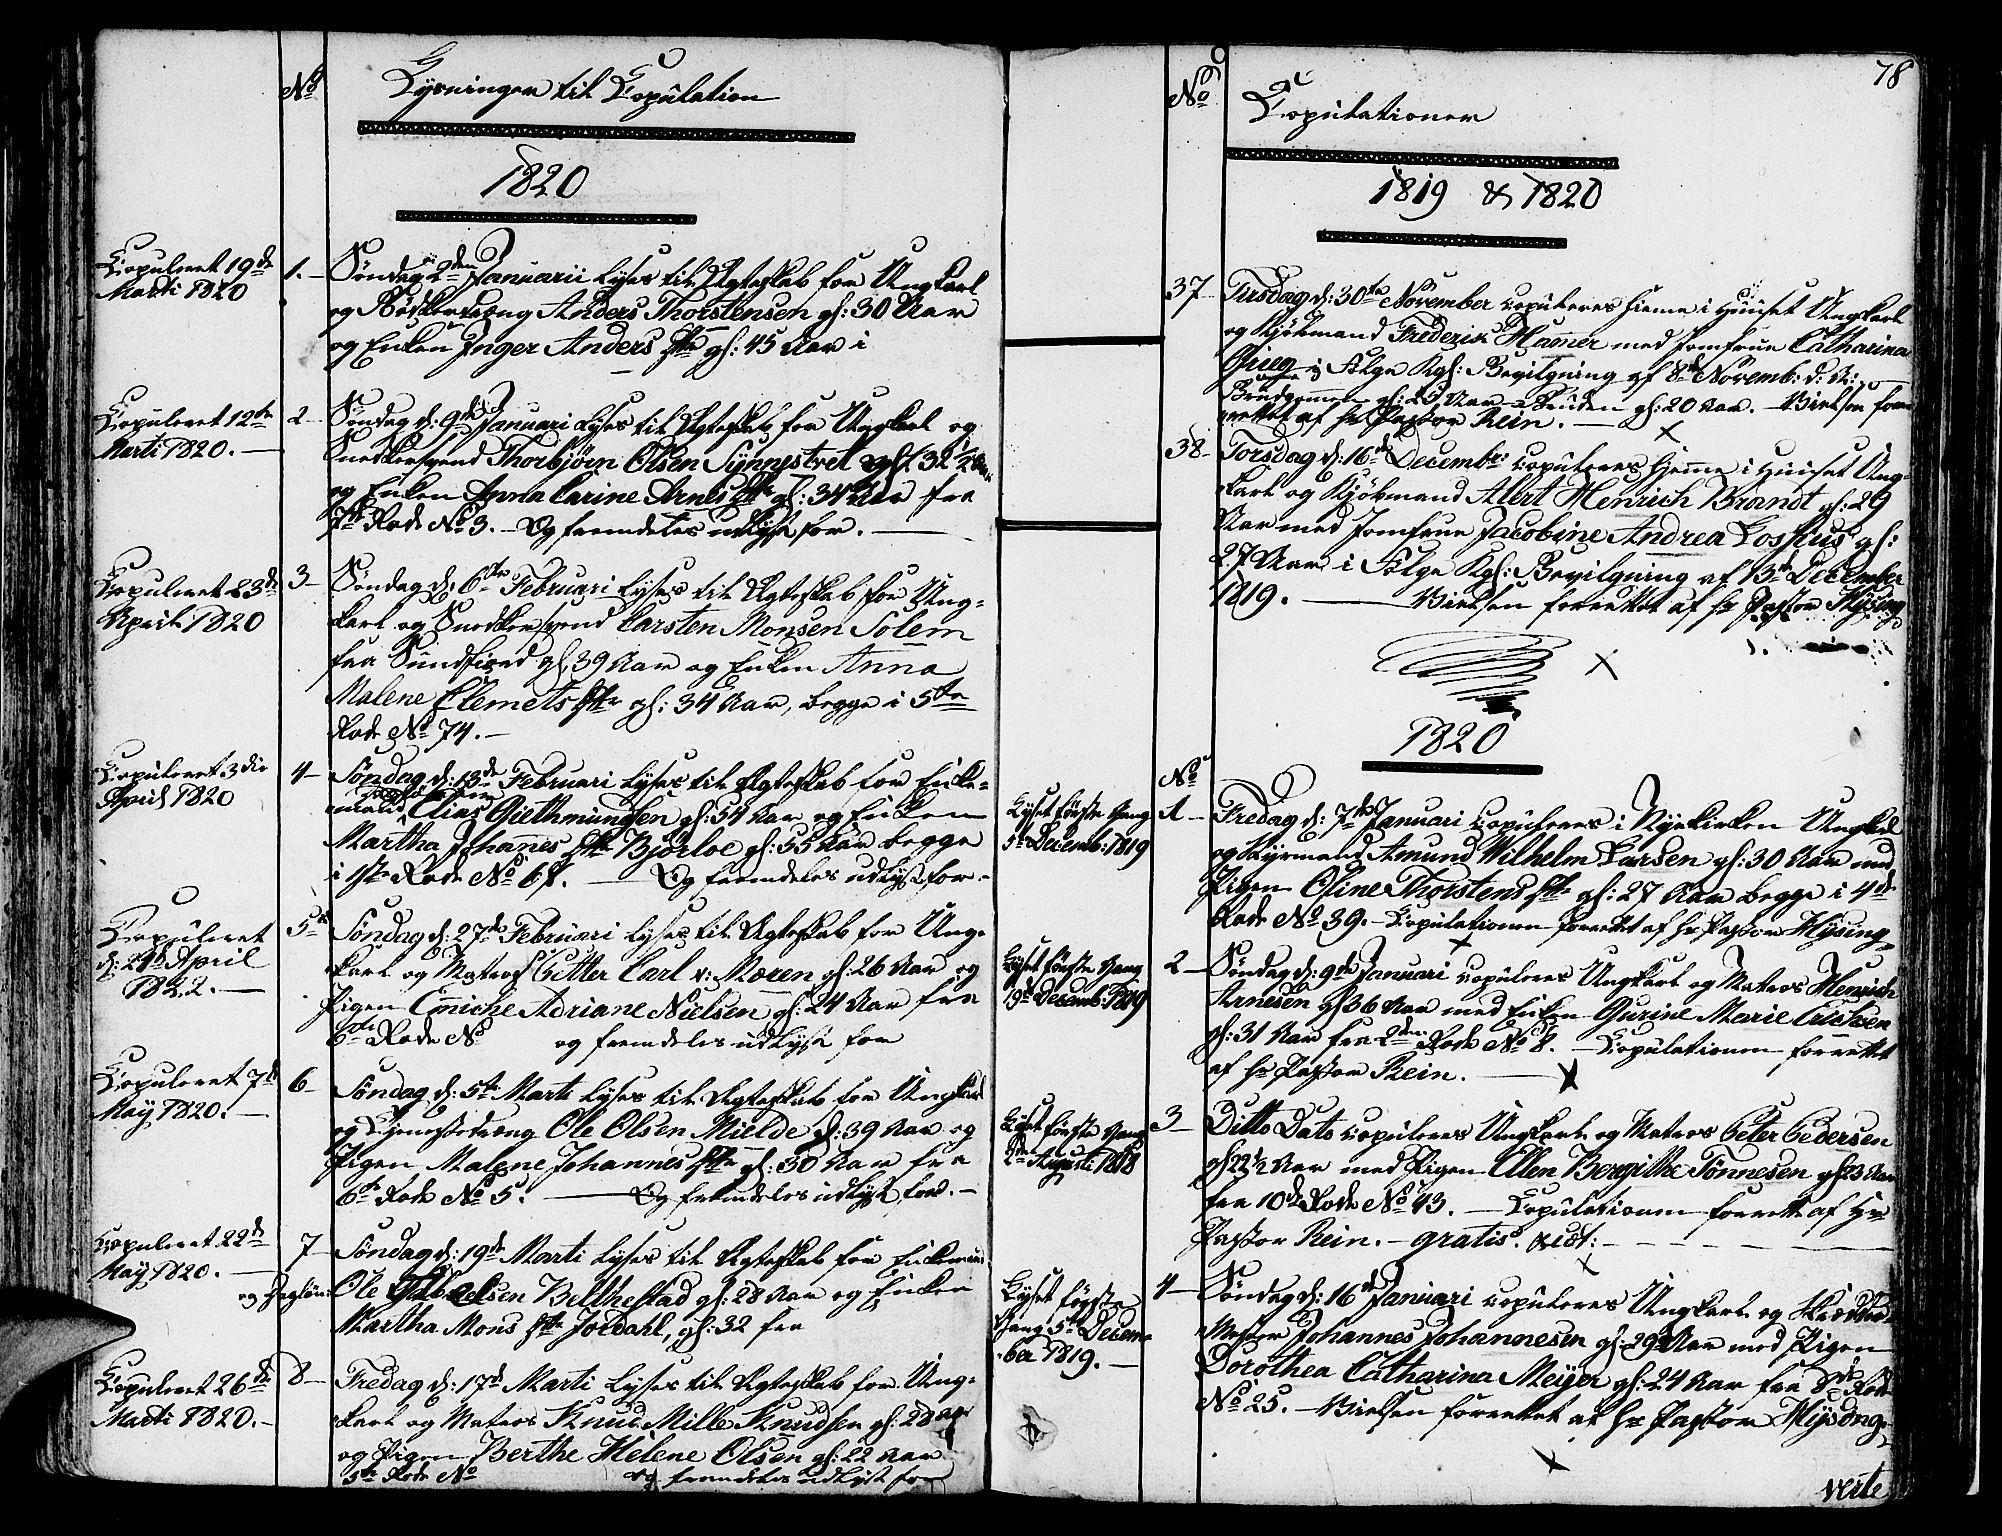 No
Lysninger til Copulation
1820
Copuleret 19de
Marti 1820
1.
Søndag 2den Januarii lyses til Ægteskab for Ungkarl
og Bødkersvend Anders Thorstensen gl: 30 Aar
og Enken Inger Anders Dtr gl: 45 Aar i
Copuleret 12te
Marti 1820. —
2
Søndag d: 9de Januari lyses til Ægteskab for Ungkarl og
Snedkersvend Thorbjørn Olsen Synnestvet gl: 32 1/2 Aar
og Enken Anna Carine Arnes Dtr gl: 34 Aar fra
Rode No 3. — Og fremdeles udlyst for. —
Copuleret 23de
April 1820
3
Søndag d: 6te Februari lyses til Ægteskab for Ung-
karl og Snedkersvend Carsten Monsen Solem
fra Sundfiord gl. 39 Aar og Enken Anna
Malene Clemets Dtr gl: 34 Aar, begge i 5te
Rode No 74. —
Copuleret 3die
April 1820
4
Søndag d: 13de Februari lyses til Ægteskab for Enke-
mand Elias Giethmundsen gl: 54 Aar og Enken
Martha Johannes Dtr Bjørloe gl: 55 Aar begge
i 1ste Rode No 67. — Og fremdeles udlyst for. —
Copuleret
d: 21de April
1822. —
5
Søndag d: 27de Februari lyses til Ægteskab for Ung-
karl og Matros Carl v: Mæren gl: 26 Aar og
Pigen Emiche Adriane Nielsen gl: 24 Aar fra
6te Rode No og fremdeles udlyst for
Copuleret 7de
May 1820. —
6
Søndag d: 5te Marti lyses til Ægteskab for Ungkarl
og Ole Olsen Mielde gl: 39 Aar og
Pigen Malene Johannes Dtr gl: 30 Aar fra
6te Rode No 5. — Og fremdeles udlyst for. —
Copuleret 22de
May 1820. —
7
Søndag d: 19de Marti lyses til Ægteskab for Enkemand
og
Ole Gabrielsen Belthestad gl: 28 Aar og Enken
Martha Mons Dtr Jordahl, gl: 32 fra
Copuleret 26de
Marti 1820. —
8
Fredag d: 17de Marti lyses til Ægteskab for Ung-
karl og Matros Knud Mille Knudsen gl: 28 Aar
og Pigen Berthe Helene Olsen gl: 22 Aar
5te Rode No og fremdeles udlyst for
78
No
Copulationer
1819 & 1820
37
Tirsdag d: 30te November copuleres hiemme i Huuset Ungkarl
og Kjøbmand Frederik Hamer med Jomfrue Catharina
Grieg i Følge Kgl: Bevilgning af 8de Novemb: d: A: —
Brudgommen gl: 23 Aar — Bruden gl: 20 Aar. — Vielsen for-
rettet af Hr Pastor Rein. —
38
Torsdag d: 16de Decembr: copuleres hjemme i Huuset Ung-
karl og Kjøbmand Alert Henrich Brandt gl: 29
Aar med Jomfrue Jacobine Andrea Loshus gl:
27 Aar i Følge Kgl: Bevilgning af 13de December
1819. — Vielsen forrettet af Hr Pastor Hysing
1820
No
Lyset første Gang
5te Decemb: 1819
1
Fredag d: 7de Januari copuleres i Nykirken Ungkarl
og Styrmand Amund Wilhelm Larsen gl: 30 Aar med
Pigen Oline Thorstens Dtr gl: 27 Aar begge i 4de
Rode No 39. — Copulationen forrettet af Hr Pastor Hysing
Lyset første Gang
19de Decemb: 1819
2
Søndag d: 9de Januari copuleres Ungkarl og Matros Henrich
Arnesen gl: 36 Aar med Enken Gurine Marie Ericksen
gl: 31 Aar fra 2den Rode No 8. — Copulationen forrettet
af Hr Pastor Rein. —
Lyset første Gang
2den Augusti 1818
3
Ditto Dato copuleres Ungkarl og Matros Peter Pedersen
gl: 22 1/2 Aar med Pigen Ellen Bergithe Tønnesen gl: 23 Aar
fra 10de Rode No 43. — Copulationen forrettet af Hr
Pastor Rein. — gratis.
Lyset første
Gang 5te Decem-
ber 1819. —
4
Søndag d: 16de Januari copuleres Ungkarl og Skrædder
Mester Johannes Johannesen gl: 29 Aar med Pigen
Dorothea Catharina Meyer gl: 24 Aar fra 8de Rode
No 25. — Vielsen forrettet af Hr Pastor Hysing.
verte